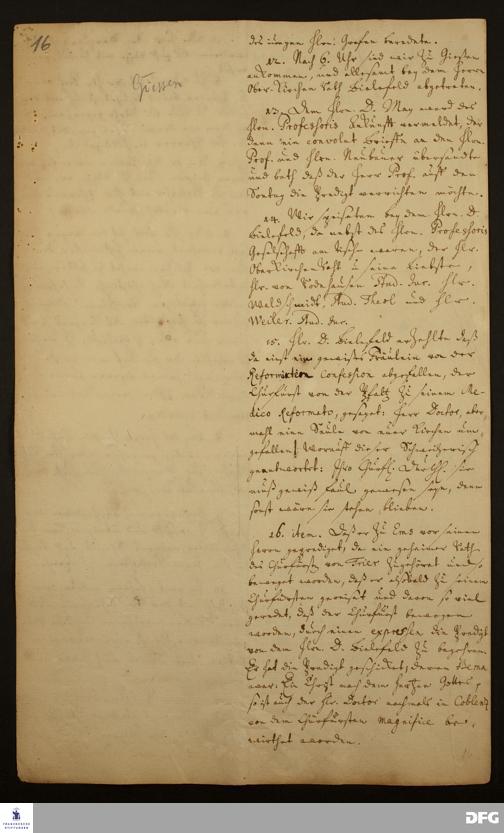 16
Giessen
des jungen Hrn. Grafen beredete.
12. Nach 6. Uhr sind wir zu Giessen
ankommen, und allesamt bey dem Herrn
Ober-Kirchen Rath Bielefeld abgetreten.
13. Dem Hrn. D. May ward des
Hrn. Professoris Ankunfft vermeldet, der
dann ein convolut Brieffe an den Hrn.
Prof. und Hrn. Neubauer übersandte
und bath daß der Herr Prof. auff den
Sontag die Predigt verrichten möchte.
14. Wir speiseten bey dem Hrn. D.
Bielefeld, da nebst des Hrn. Professoris
Gesellschafft am Tisch waren, der Hr.
OberKirchenRath u. seine Liebste,
Hr. von Bodenhausen Stud. Jur. Hr.
Waldschmidt, Stud. Theol und Hr.
Weiler. Stud. Jur.
15. Hr. D. Bielefeld erzehlte daß
da einst ein gewisses Fräulein von der
Reformirten Confession abgefallen, der
Churfürst von der Pfaltz zu seinem Me-
dico Reformato, gesaget: Herr Doctor, aber-
mahl eine Säule von eurer Kirchen um-
gefallen! Worauff dieser
geantwortet: Ihro Churfl. Durchl. sie
muß gewiß faul gewesen seyn, denn
sonst wäre sie stehen blieben.
16. item. Daß er zu Ems vor seinem
Herrn geprediget, da ein geheimer Rath
des Churfürsten von Trier zugehöret und so
beweget worden, daß er alsobald zu seinem
Churfürsten gereiset und davon so viel
geredet, daß der Churfürst bewogen
worden, durch einen expressen die Predigt
von dem Hrn. D. Bielefeld zu begehren.
Er hat die Predigt geschicket, deren thema
war: Ein Christ nach dem Hertzen Gottes,
so ist auch der Hr. Doctor nachmals in Coblentz
von dem Churfürsten magnifice be-
wirthet worden.
FRANCKESCHE
STIFTUNGEN
DFG